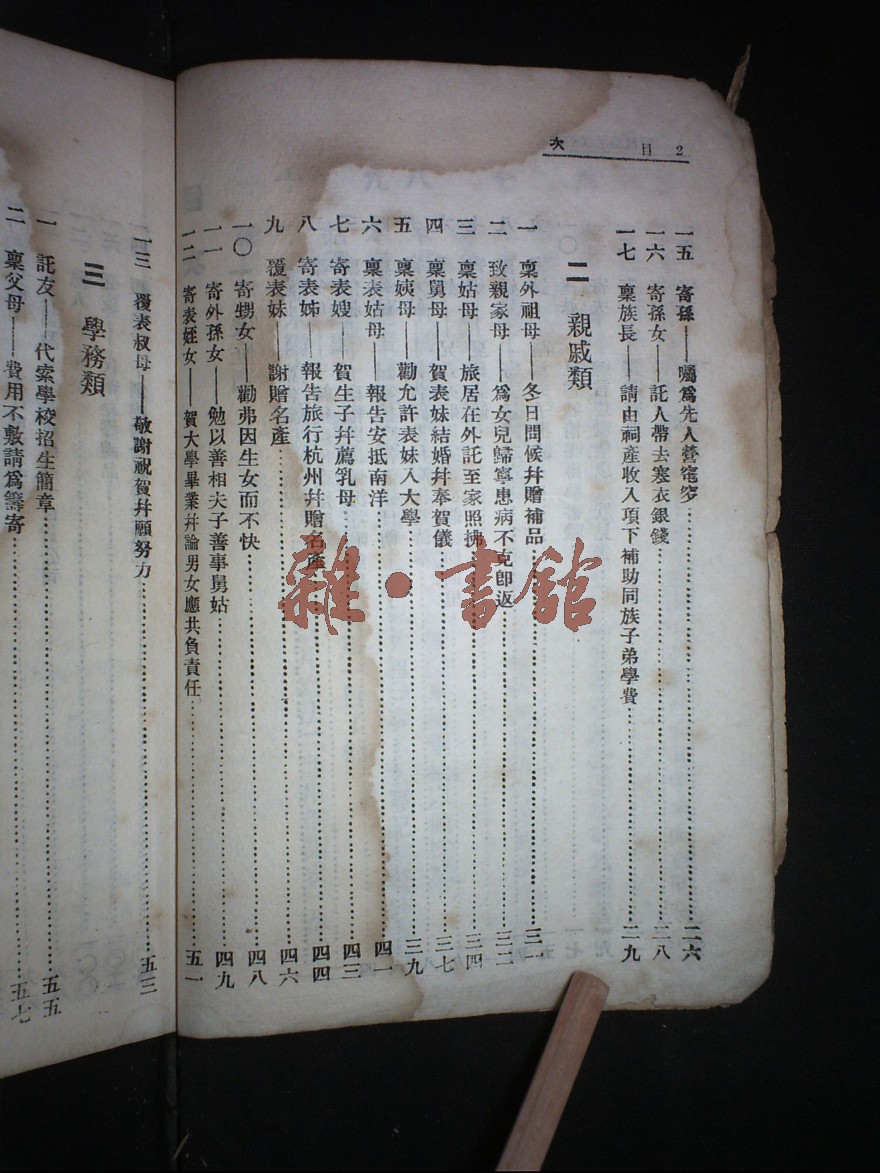 2 目次
一五 寄孫——囑爲先人營窀穸 二六
一六 寄孫女——託人帶去寒衣銀錢 二八
一七 稟族長——請由祠產收入項下補助同族子弟學費 二九
二 親戚類
一 稟外祖母——冬日問候幷贈補品 三一
二 致親家母——爲女兒歸寧患病不克卽返 三二
三 稟姑母——旅居在外託至家照拂 三四
四 稟舅母——賀表妹結婚幷奉賀儀 三七
五 稟姨母——勸允許表妹入大學 三九
六 稟表姑母——報告安抵南洋 四一
七 寄表嫂——賀生子幷薦乳母 四三
八 寄表姊——報告旅行杭州幷贈名產 四四
九 覆表妹——謝贈名產 四六
一〇 寄甥女——勸弗因生女而不快 四八
一一 寄外孫女——勉以善相夫子善事舅姑 四九
一二 寄表姪女——賀大學畢業幷論男女應共負責任 五一
一三 覆表叔母——敬謝祝賀幷願努力 五三
三 學務類
一 託友——代索學校招生簡章 五五
二 稟父母——費用不敷請爲籌寄 五七
雜·書館